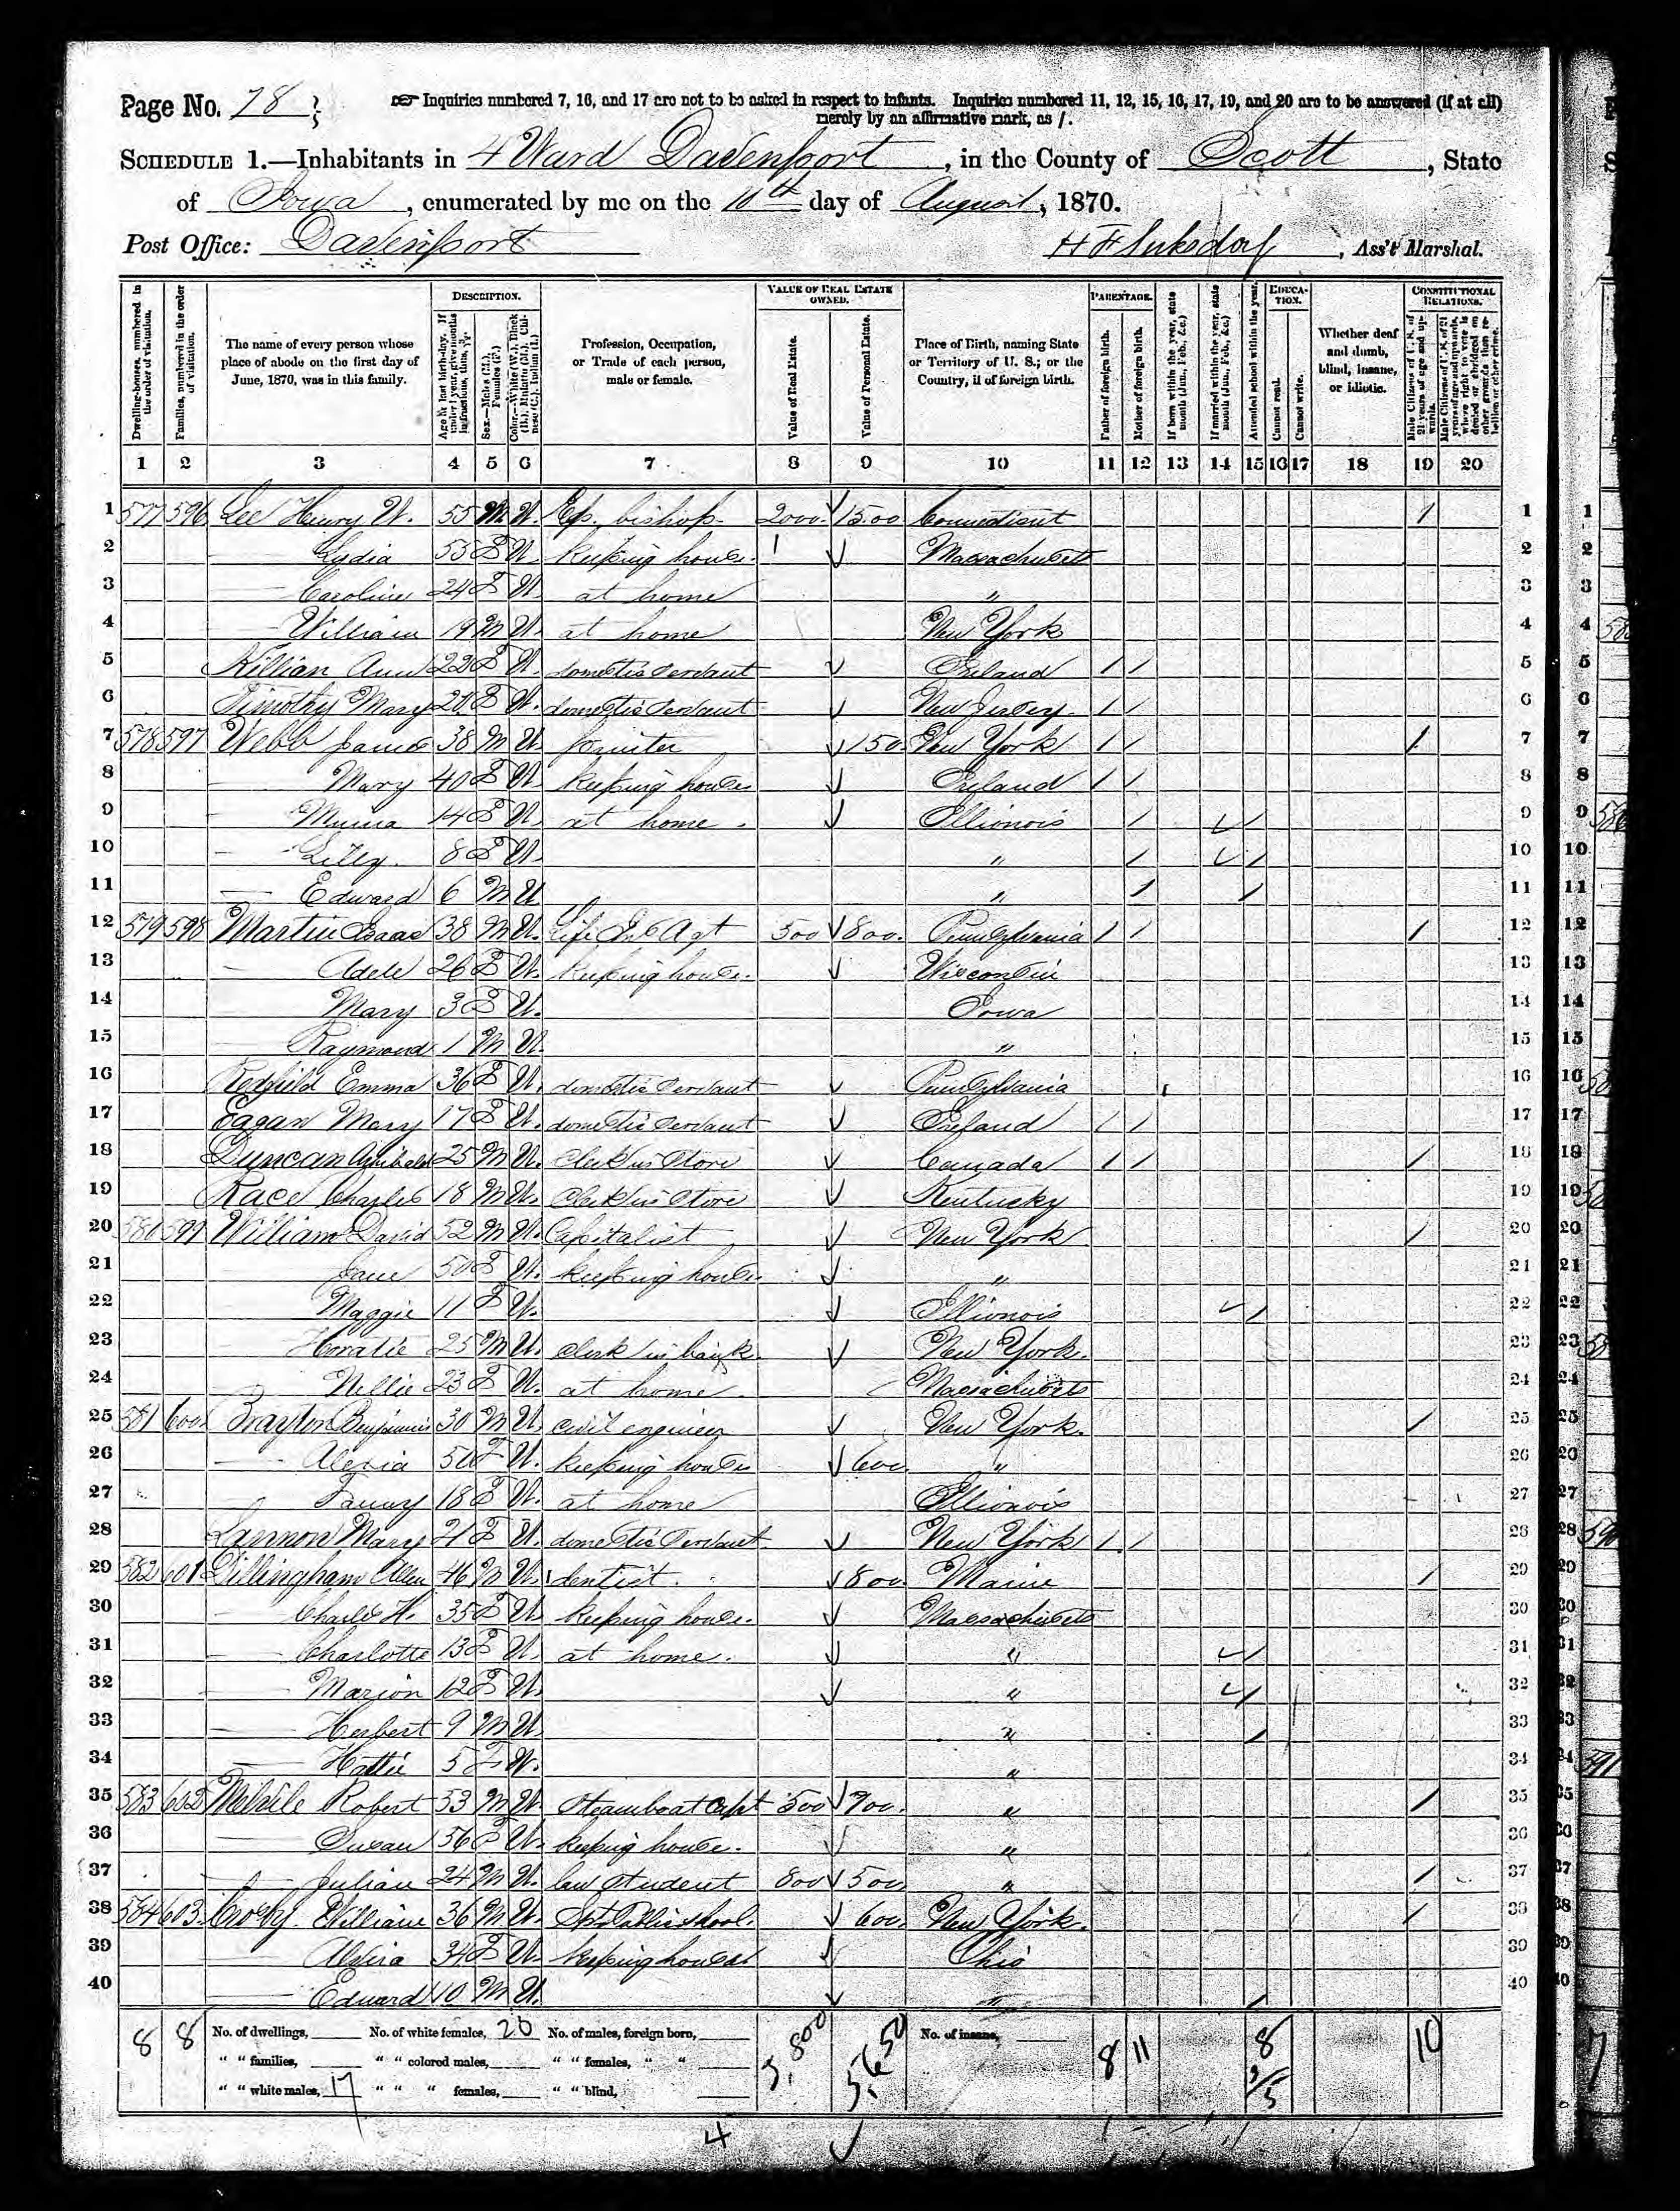 Page No. 78
Inquiries numbered 7, 16, and 17 are not to be asked in respect to infants. Inquiries numbered 11, 12, 15, 16, 17, 19, and 20 are to be answered (if at all)
merely by an affirmative mark, as /.
SCHEDULE 1.—Inhabitants in 4 Ward Davenport, in the County of Scott, State
of Iowa, enumerated by me on the 10th day of August, 1870.
Post Office: Davenport H F Suksdorf, Ass't Marshal.
Dwelling-houses, numbered in the order of visitation.
Families, numbered in the order of visitation.
The name of every person whose place of abode on the first day of June, 1870, was in this family.
DESCRIPTION.
Age at last birth-day. If under 1 year, give months in fractions, thus,
Sex.—Males (M.), Females (F.)
Color.—White (W.), Black (B.), Mulatto (M.), Chinese (C.), Indian (I.)
Profession, Occupation, or Trade of each person, male or female.
VALUE OF REAL ESTATE OWNED.
Value of Real Estate.
Value of Personal Estate.
Place of Birth, naming State or Territory of U. S.; or the Country, if of foreign birth.
PARENTAGE.
Father of foreign birth.
Mother of foreign birth.
If born within the year, state month (Jan., Feb., &c.)
If married within the year, state month (Jan., Feb., &c.)
Attended school within the year.
EDUCATION.
Cannot read.
Cannot write.
Whether deaf and dumb, blind, insane, or idiotic.
CONSTITUTIONAL RELATIONS.
Male Citizens of U. S. of 21 years of age and upwards.
Male Citizens of U. S. of 21 years of age and upwards, whose right to vote is denied or abridged on other grounds than rebellion or other crime.
1 2 3 4 5 6 7 8 9 10 11 12 13 14 15 16 17 18 19 20
1 577 596 Lee Henry W. 55 M W. Ep. bishop 2000 1500 Connecticut / 1
2 Lydia 55 F W. keeping house. Massachusets 2
3 Caroline 24 F W. at home " 3
4 William 19 M W. at home New York 4
5 Killian Ann 22 F W. domestic servant Ireland / / 5
6 Timothy Mary 20 F W. domestic servant New Jersey / / 6
7 578 597 Webb James 38 M W. 150 New York / / / 7
8 Mary 40 F W. keeping house Ireland / / 8
9 14 F W. at home. Illionois / / 9
10 Lilly 8 F W. " / / 10
11 Edward 6 M W " / / 11
12 579 598 Martin Isaac 38 M W. Life Ins Agt 500 800. Pennsylvania / / / 12
13 Adele 26 F W. keeping house. Wisconsin 13
14 Mary 3 F W. Iowa 14
15 Raymond 1 M W. " 15
16 Redfield Emma 36 F W. domestic servant Pennsylvania 16
17 Eagan Mary 17 F W. domestic servant Ireland / / 17
18 Duncan Archibald 25 M W. Clerk in Store Canada / / / 18
19 Race Charles 18 M W. Clerk in Store Kentucky 19
20 580 599 William David 52 M W. Capitalist New York / 20
21 Jane 50 F W. keeping house. " 21
22 Maggie 11 F W. Illionois / 22
23 Horatio 25 M W. Clerk in bank. New York. 23
24 Nellie 23 F W. at home. Massachusets 24
25 581 600 Brayton Benjamin 30 M W. civil engineer New York. / 25
26 50 F W. keeping house 600. " 26
27 Fanny 18 F W. at home Illionois 27
28 Lannon Mary 21 F W. domestic servant New York / / 28
29 582 601 Dillingham Allen 46 M W. dentist. 800. Maine / 29
30 Charle H. 35 F W. keeping house. Massachusets 30
31 Charlotte 13 F W. at home. " / 31
32 Marion 12 F W. " / 32
33 Herbert 9 M W. " / 33
34 Hattie 5 F W. " 34
35 583 602 Robert 53 M W Steamboat Capt 500 900. " / 35
36 Susan 56 F W. keeping house. " 36
37 Julian 24 M W. law student 800 500 " / 37
38 584 603 Crosby William 36 M W. Spt Public school. 600. New York. / 38
39 34 F W. keeping house Ohio 39
40 Edward 10 M W. " / 40
8 8 No. of dwellings, No. of white females, 20 No. of males, foreign born, 3,800 5,650 No. of insane, 8 11 8 10
" " families, " " colored males, " " females, " " 3/5
" " white males, 17 " " " females, " " blind,
4